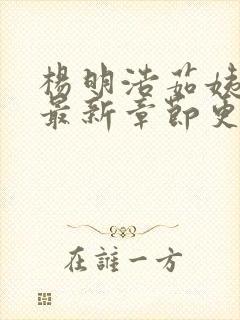 楊明浩茹姨
最新章節更
在誰一方